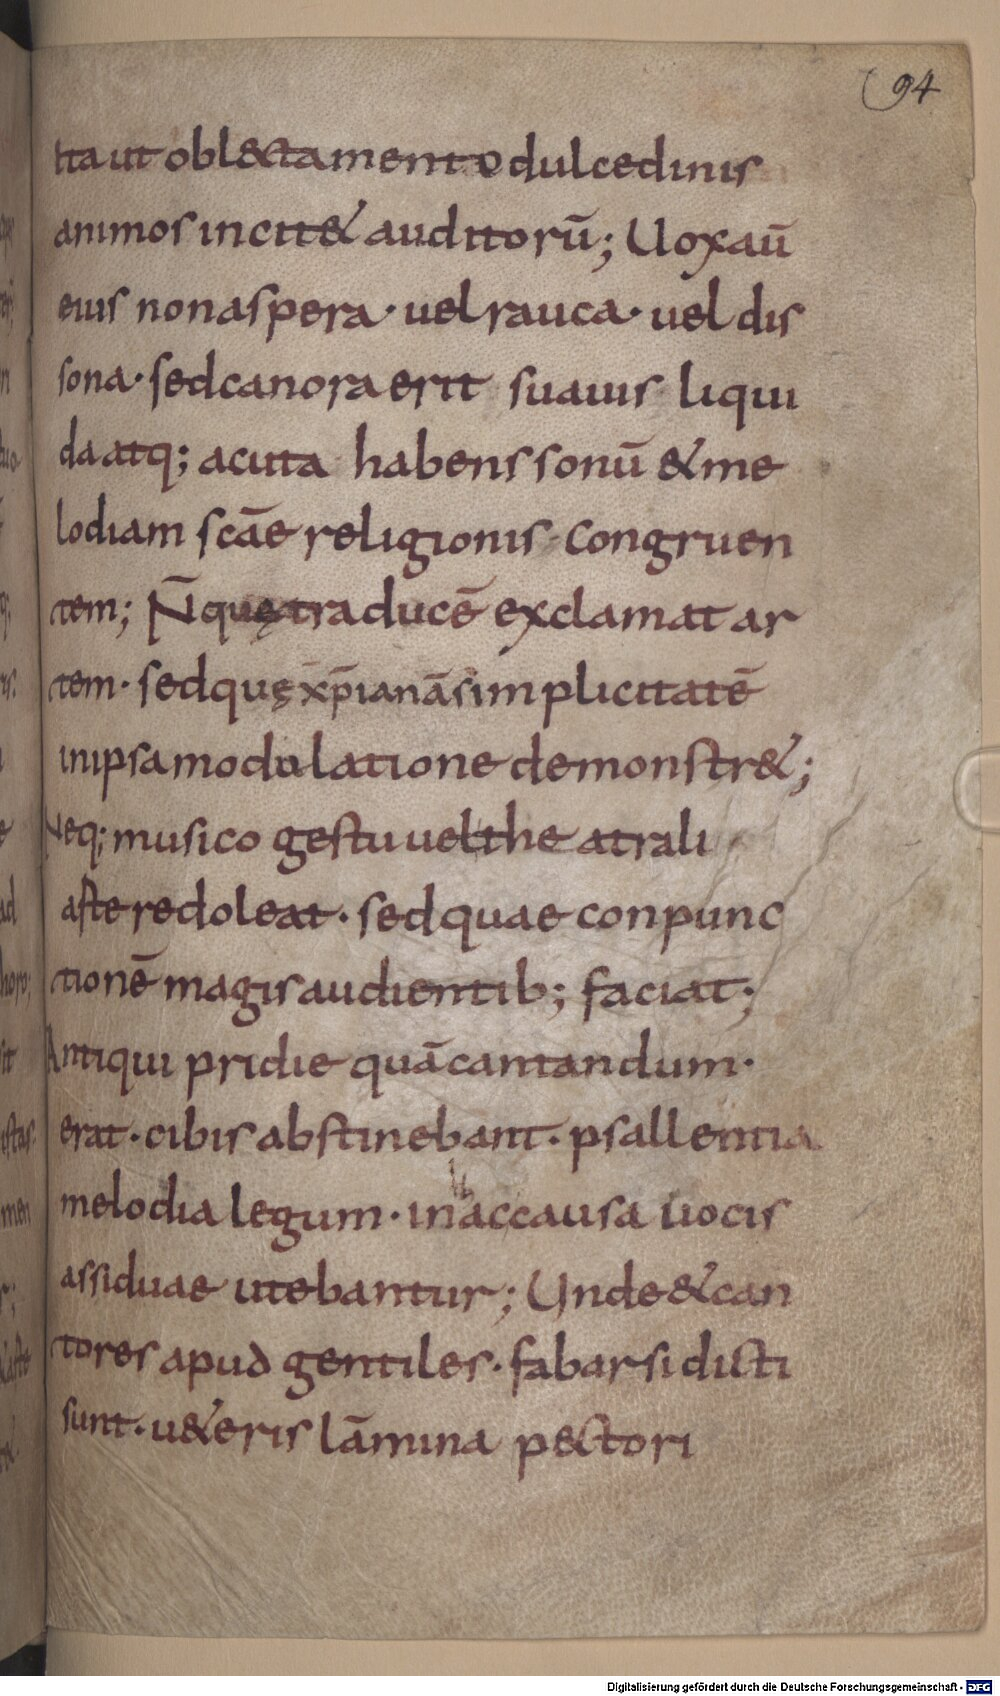 94
ita ut obl&ctamento dulcedinis
animos incit& auditorū; Uox aū
eius non aspera · uel rauca · uel dis
sona · sed canora erit suauis liqui
da atq; acuta habens sonū & me
lodiam scāe religionis congruen
tem; N̄ quę traducē exclamat ar
tem · sed quę xp̄ianā simplicitatē
in ipsa modulatione demonstr&;
Neq; musico gestu uel theatrali
aste redoleat · sed quae conpunc
tionē magis audientib; faciat;
Antiqui pridie quā cantandum ·
erat · cibis abstinebant · psallentia
melodia legum · in ac causa uocis
assiduae utebantur; Unde & can
tores apud gentiles · fabarsi dicti
sunt · u&eris lāmina p&ctori
Digitalisierung gefördert durch die Deutsche Forschungsgemeinschaft - DFG